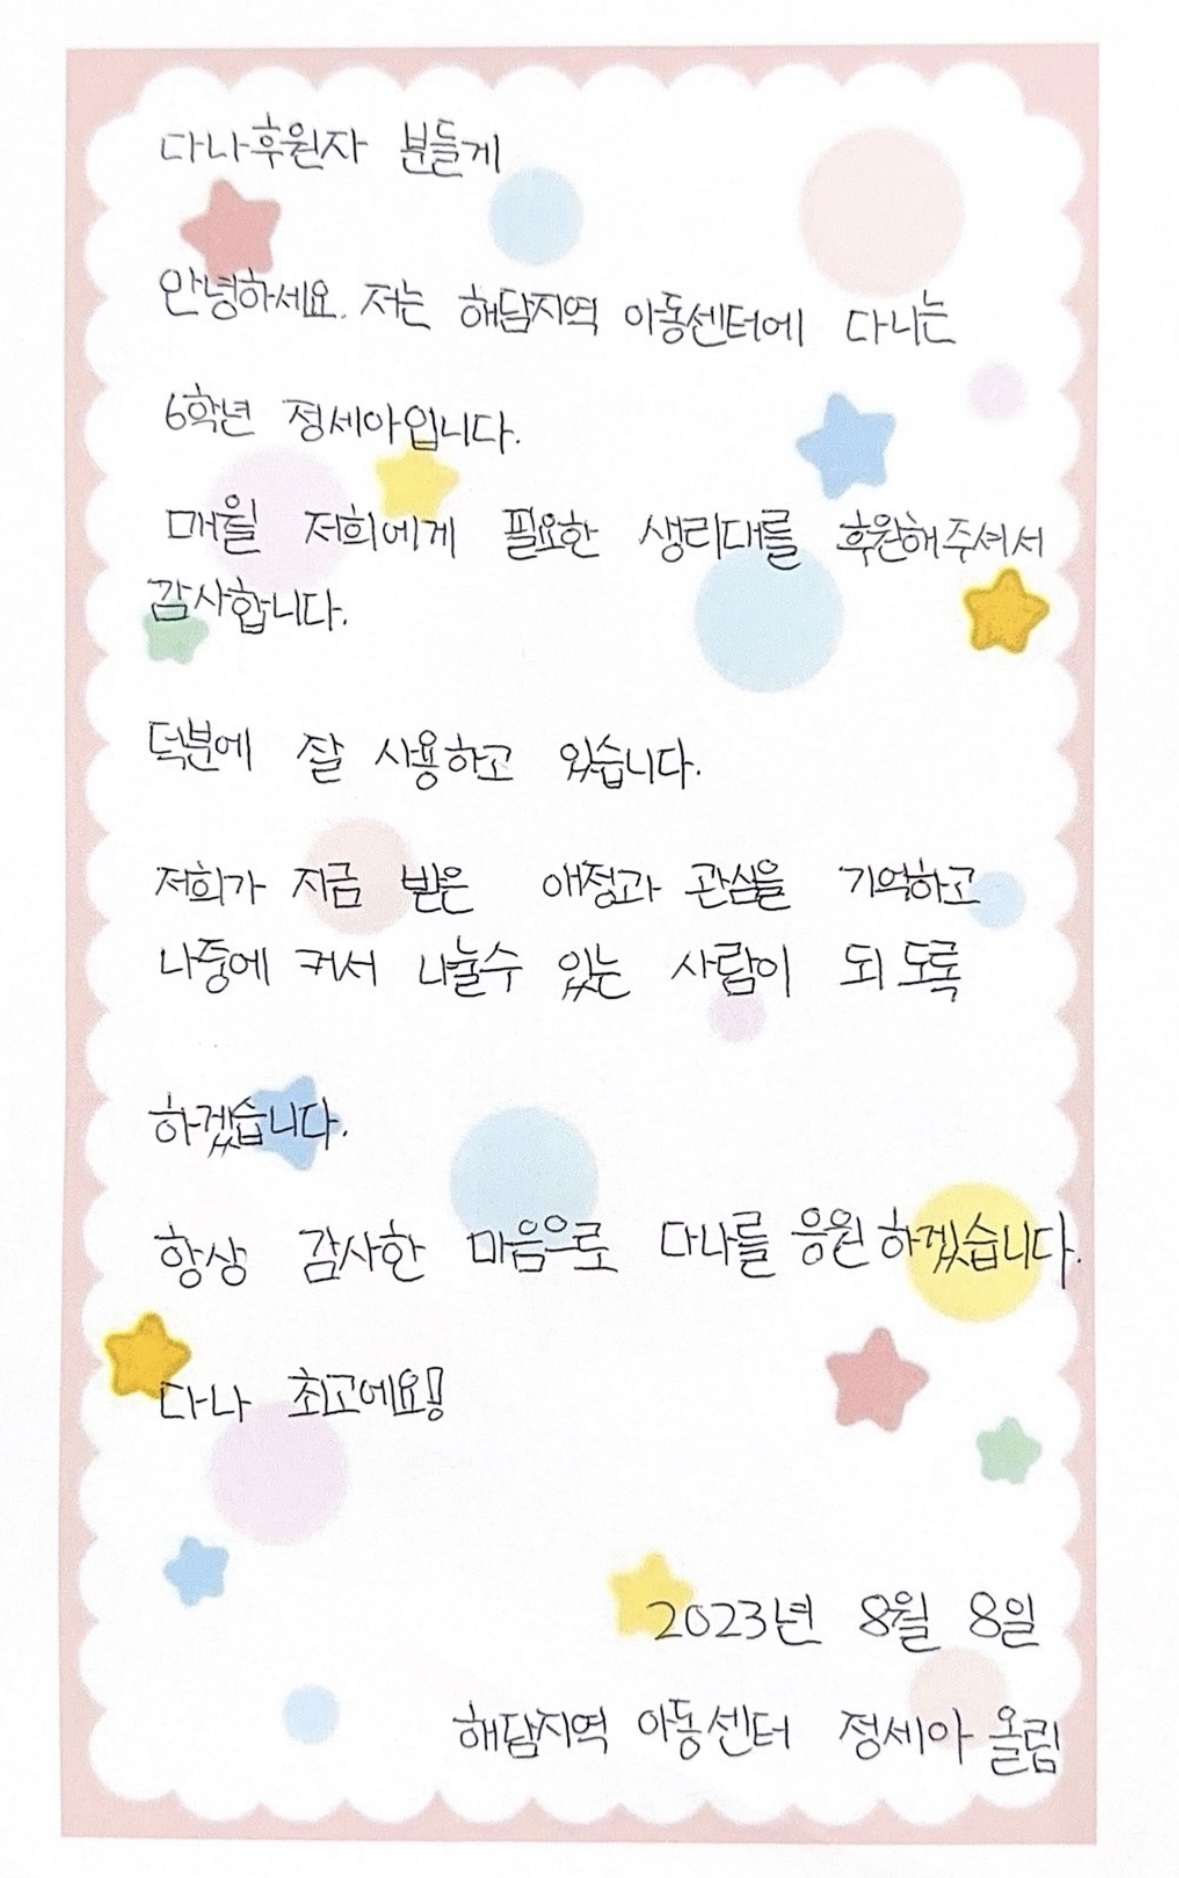 다나후원자 분들게
안녕하세요. 저는 해담지역 아동센터에 다니는
6학년 정세아입니다.
매월 저희에게 필요한 생리대를 후원해주셔서
감사합니다.
덕분에 잘 사용하고 있습니다.
저희가 지금 받은 애정과 관심을 기억하고
나중에 커서 나눌수 있는 사람이 되도록
하겠습니다.
항상 감사한 마음으로 다나를 응원하겠습니다.
다나 최고에요!
2023년 8월 8일
해담지역 아동센터 정세아 올림